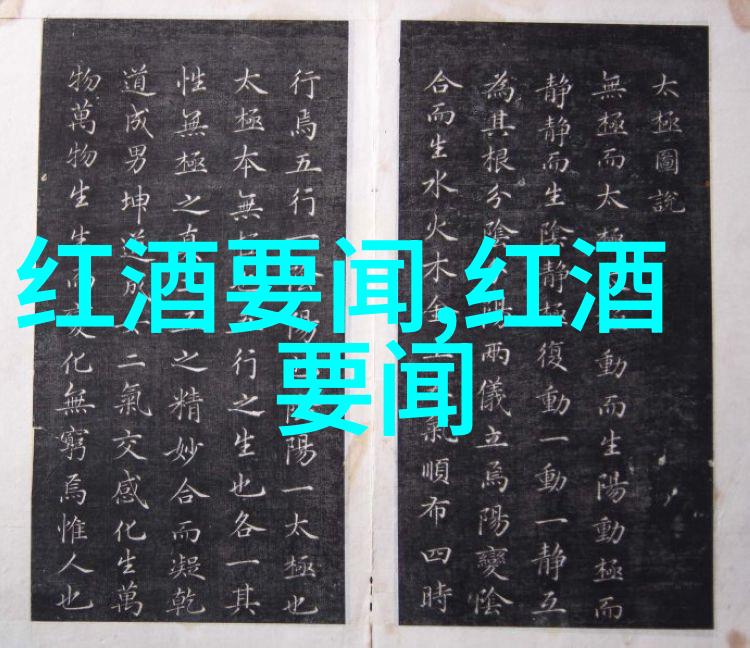 红酒要闻,红酒
要闻
太極圖說
無極而太極動而生陽動極而
静静而生陰静極復動一動一静互
為其根分陰陽兩儀立焉陽變陰
合而生水火木金氣順布四時
行焉五行陰陽陰陽一太極也
太極本無行之生也各一其
性無極之真之精妙合而凝乾
道成男坤道成二氣交感化生萬
物萬物生生而變化無窮焉惟人也